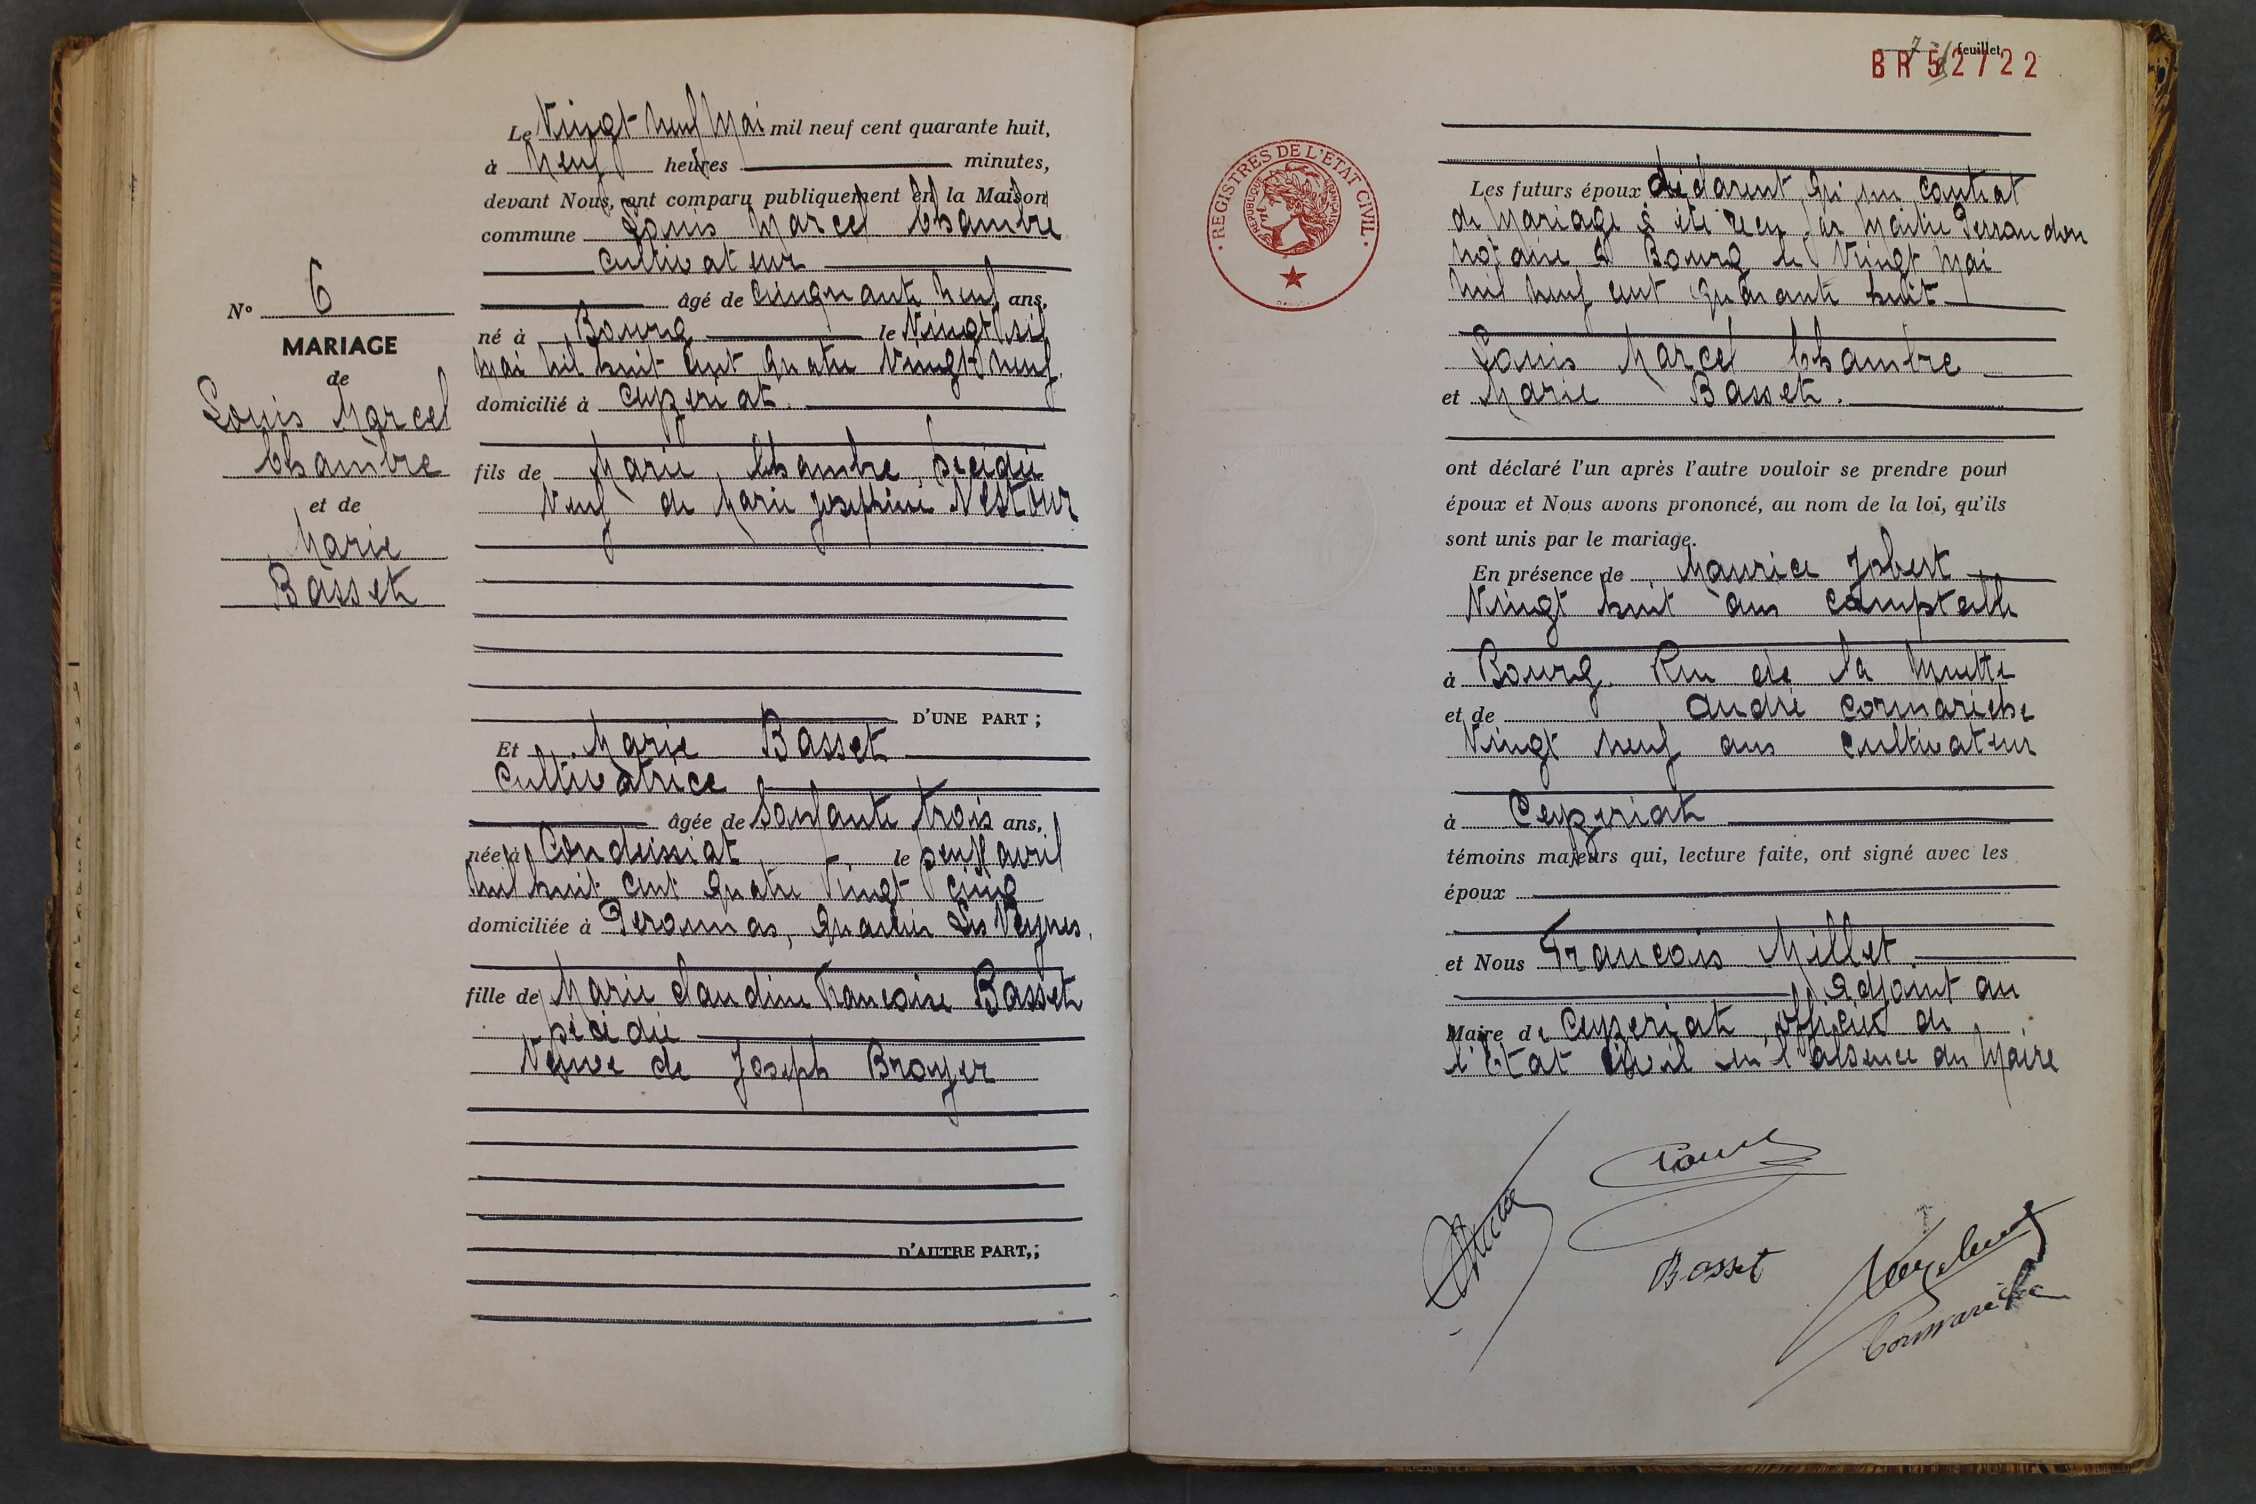 Le Vingt Neuf Mai mil neuf cent quarante huit,
à Neuf heures minutes,
devant Nous, ont comparu publiquement en la Maison
commune Louis Marcel Chambre
cultivateur
âgé de cinquante Neuf ans,
né à Bourg le Vingt Six
Mai Mil huit Cent quatre Vingt Neuf
domicilié à Ceyzeriat.
fils de Marie Chambre, décédée
Veuf de Marie Josephine Nestour
D'UNE PART ;
Et Marie Basset
Cultivatrice
âgée de Soixante trois ans,
née à Condeissiat, le avril
Mil huit cent quatre Vingt cinq
domiciliée à Peronnas, quartier Les Vennes.
fille de Marie Claudine Francoise Basset
décédée
Veuve de Joseph Broyer
D'AUTRE PART,;
N° 6
MARIAGE
de
Louis Marcel
Chambre
et de
Marie
Basset
7 feuillet
BR 52722
REGISTRES DE L'ETAT CIVIL
REPUBLIQUE FRANÇAISE
Les futurs époux déclarent qu'un contrat
de Mariage a été reçu par Maitre Perraudon
notaire à Bourg le Vingt Mai
Mil Neuf cent quarante huit
Louis Marcel Chambre
et Marie Basset.
ont déclaré l'un après l'autre vouloir se prendre pour
époux et Nous avons prononcé, au nom de la loi, qu'ils
sont unis par le mariage.
En présence de Maurice Jobert
Vingt huit ans comptable
à Bourg Rue de la
et de André Cormarèche
Vingt Neuf ans cultivateur
à Ceyzeriat
témoins majeurs qui, lecture faite, ont signé avec les
époux
et Nous Francois Millet
adjoint au
Maire de Ceyzeriat, officier de
l'Etat civil en l'absence du Maire
Basset
Cormarèche